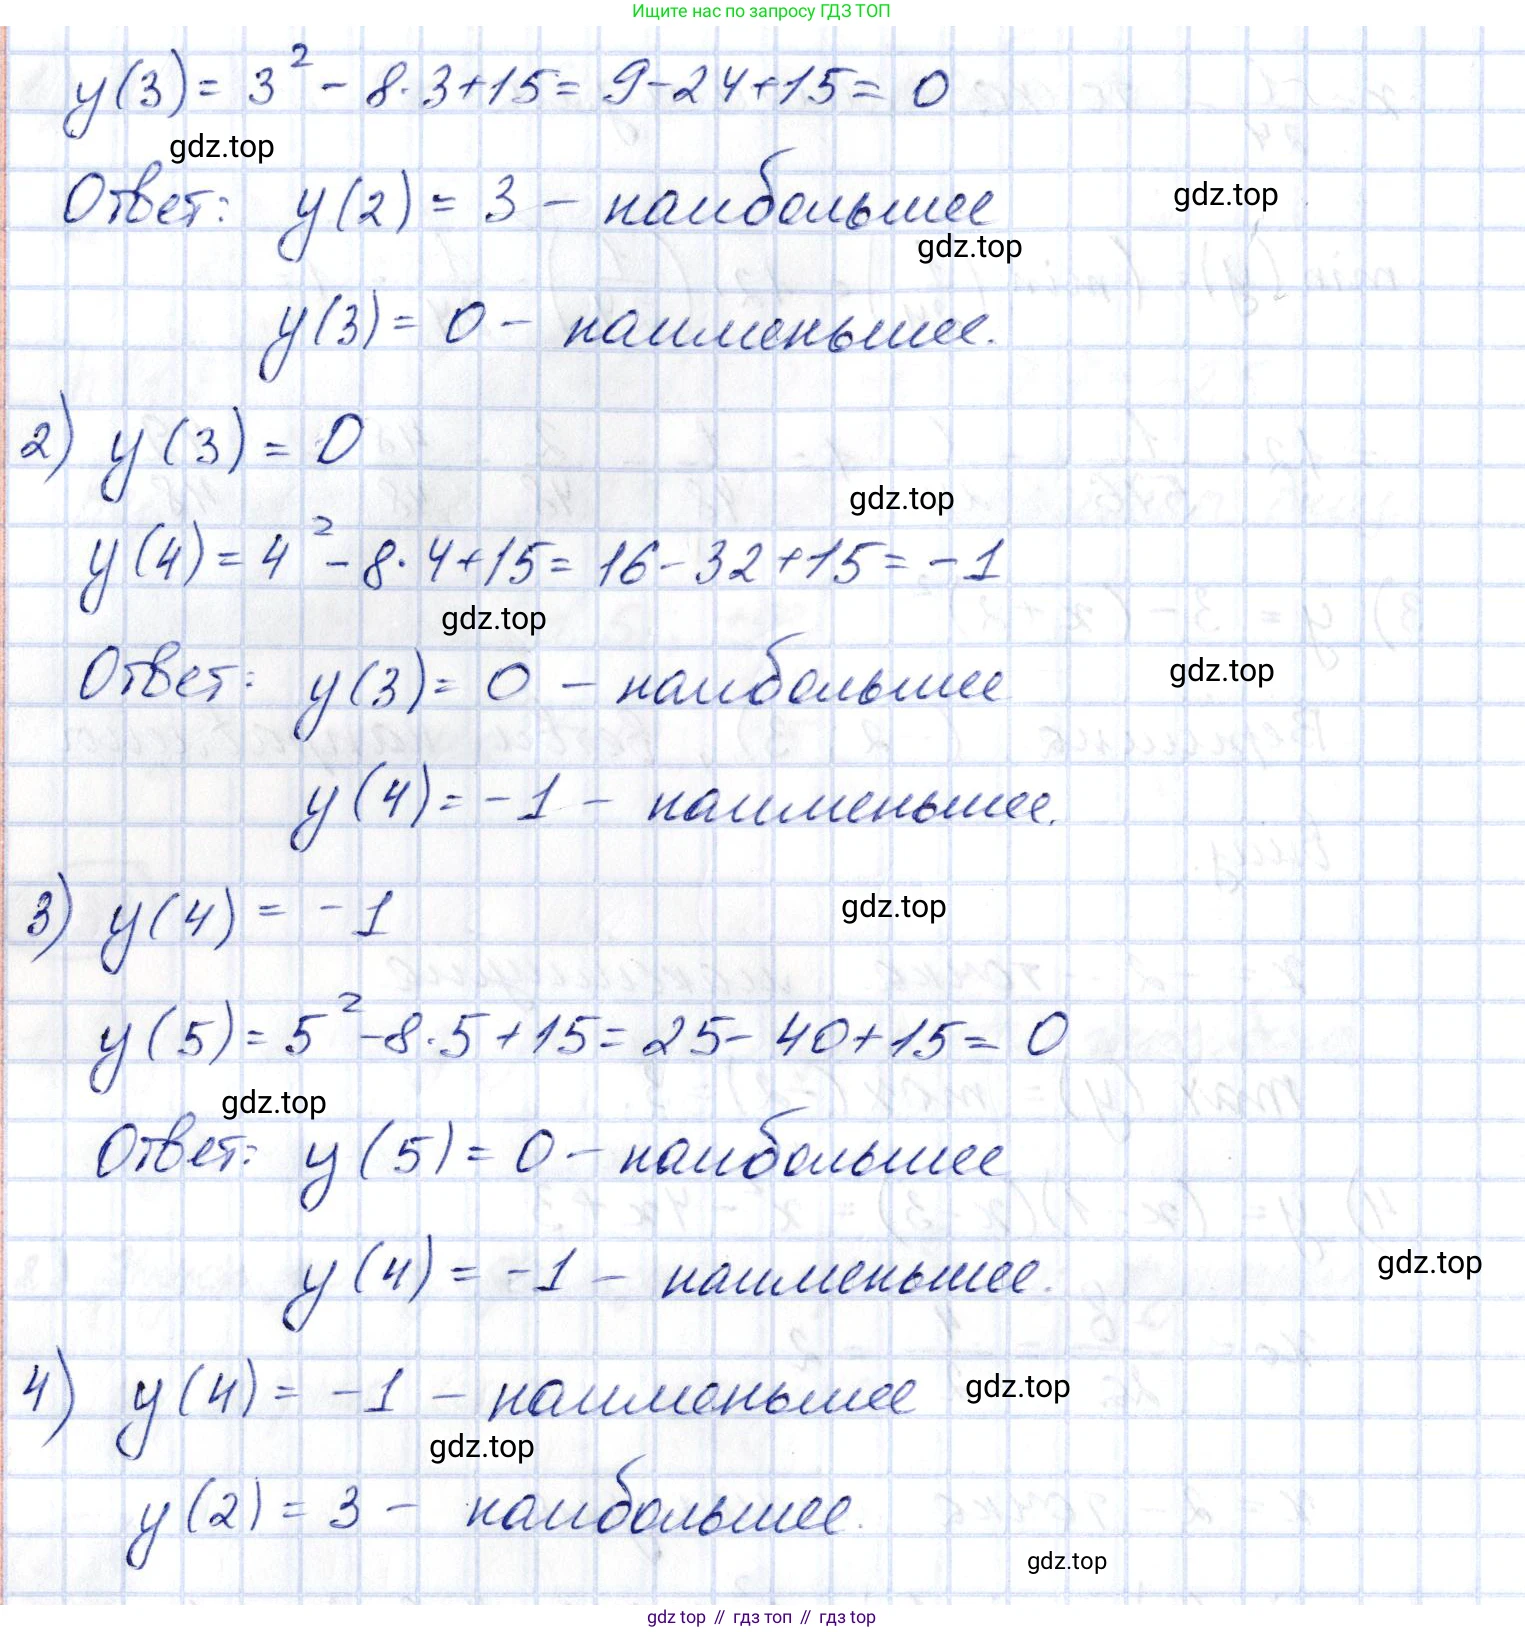 Ищите нас по запросу ГДЗ ТОП
y(3) = 3² - 8·3+15 = 9-24+15 = 0
gdz.top
Ответ: y(2) = 3 - наибольшее
gdz.top
gdz.top
y(3) = 0 - наименьшее.
2) y(3) = 0
gdz.top
y(4) = 4² - 8·4+15 = 16-32+15 = -1
gdz.top
Ответ: y(3) = 0 - наибольшее
gdz.top
y(4) = -1 - наименьшее.
3) y(4) = -1
gdz.top
y(5) = 5² - 8·5+15 = 25-40+15 = 0
gdz.top
Ответ: y(5) = 0 - наибольшее
y(4) = -1 - наименьшее.
gdz.top
4) y(4) = -1 - наименьшее
gdz.top
gdz.top
y(2) = 3 - наибольшее.
gdz.top
gdz top // гдз топ // гдз top